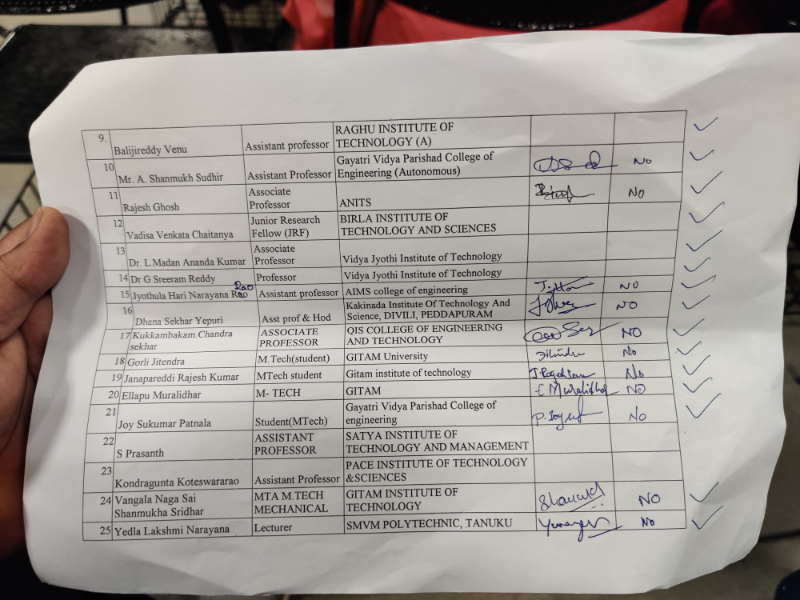 9. Balijireddy Venu Assistant professor RAGHU INSTITUTE OF
TECHNOLOGY (A)
10 Mr. A. Shanmukh Sudhir Assistant Professor Gayatri Vidya Parishad College of
Engineering (Autonomous) NO
11 Rajesh Ghosh Associate
Professor ANITS NO
12 Vadisa Venkata Chaitanya Junior Research
Fellow (JRF) BIRLA INSTITUTE OF
TECHNOLOGY AND SCIENCES
13 Dr. L Madan Ananda Kumar Associate
Professor Vidya Jyothi Institute of Technology
14 Dr G Sreeram Reddy Professor Vidya Jyothi Institute of Technology
15 Jyothula Hari Narayana Rao Assistant professor AIMS college of engineering NO
16 Dhana Sekhar Yepuri Asst prof & Hod Kakinada Institute Of Technology And
Science, DIVILI, PEDDAPURAM NO
17 Kukkambakam.Chandra
sekhar ASSOCIATE
PROFESSOR QIS COLLEGE OF ENGINEERING
AND TECHNOLOGY NO
18 Gorli Jitendra M.Tech(student) GITAM University No
19 Janapareddi Rajesh Kumar MTech student Gitam institute of technology No
20 Ellapu Muralidhar M- TECH GITAM E Muralidhar NO
21 Joy Sukumar Patnala Student(MTech) Gayatri Vidya Parishad College of
engineering No
22 S Prasanth ASSISTANT
PROFESSOR SATYA INSTITUTE OF
TECHNOLOGY AND MANAGEMENT
23 Kondragunta Koteswararao Assistant Professor PACE INSTITUTE OF TECHNOLOGY
&SCIENCES
24 Vangala Naga Sai
Shanmukha Sridhar MTA M.TECH
MECHANICAL GITAM INSTITUTE OF
TECHNOLOGY NO
25 Yedla Lakshmi Narayana Lecturer SMVM POLYTECHNIC, TANUKU No